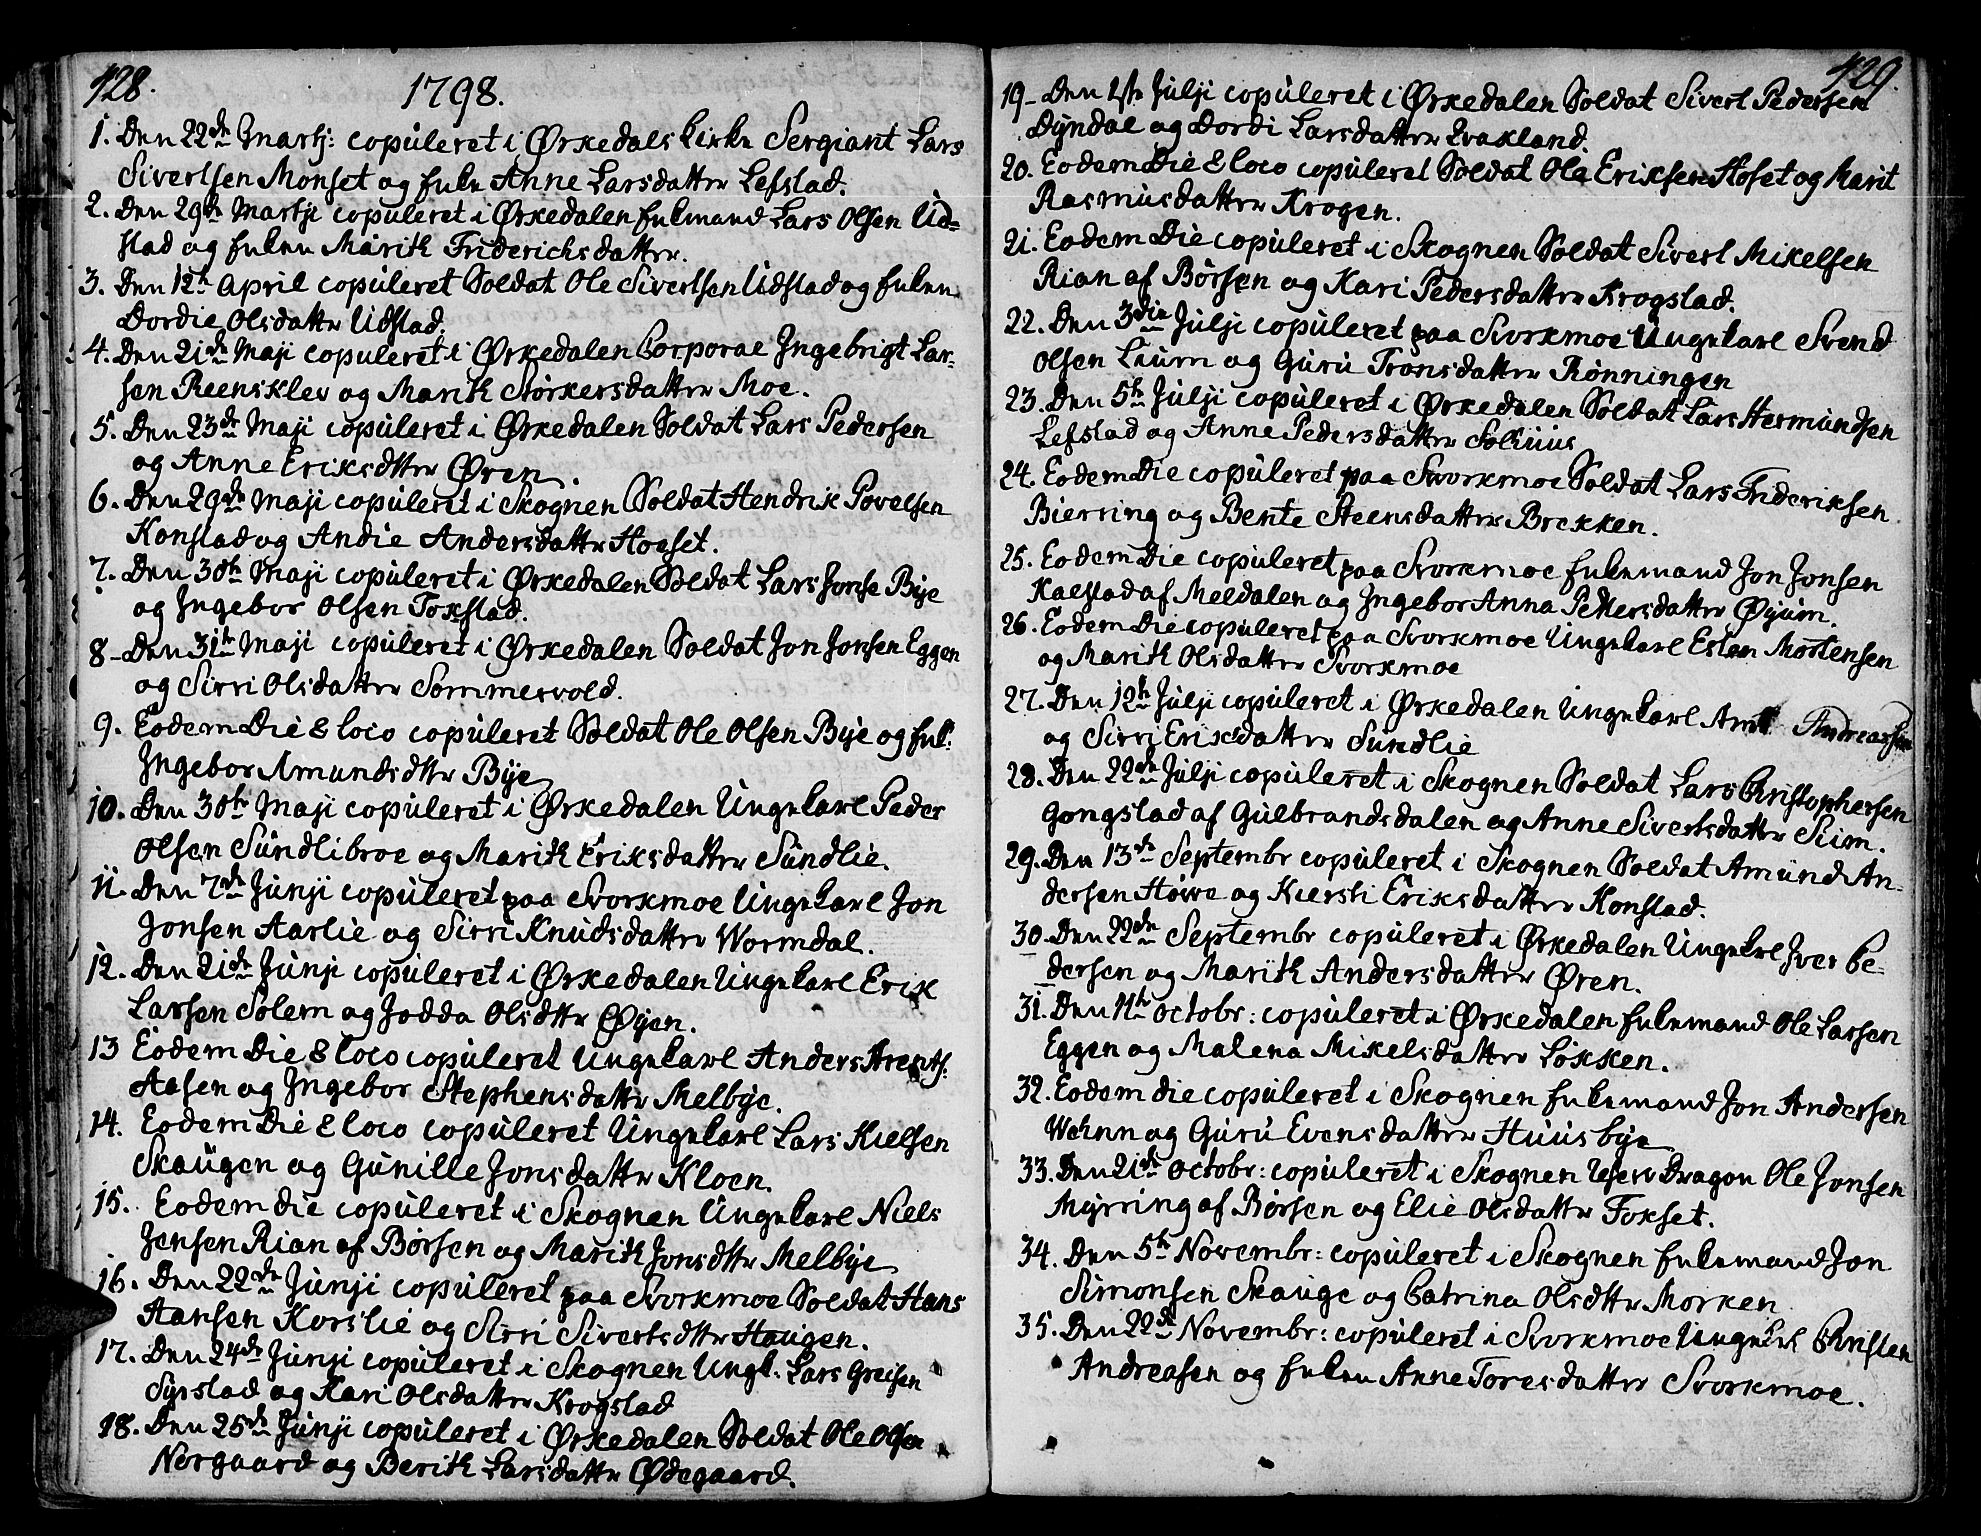 428.
1798.
1. Den 22de Martj: copuleret i Ørkedals Kirke Sergiant Lars
Sivertsen Monset og Enke Anne Larsdatter Lefstad.
2. Den 29de Martji copuleret i Ørkedalen Enkemand Lars Olsen Ud-
stad og Enken Marith Friderichsdatter.
3. Den 12te April copuleret Soldat Ole Sivertsen Udstad og Enken
Dordie Olsdattr Udstad.
4. Den 21de Maji copuleret i Ørkedalen Corporal Ingebrigt Lar-
sen Reensklev og Marith Størkersdatter Moe.
5. Den 23de Maji copuleret i Ørkedalen Soldat Lars Pedersen
og Anne Eriksdttr Øren.
6. Den 29de Maji copuleret i Skognen Soldat Hendrik Povelsen
Konstad og Andie Andersdattr Hoeset.
7. Den 30te Maji copuleret i Ørkedalen Soldat Lars Jonse Bye
og Ingebor Olsen Tokstad.
8- Den 31te Maji copuleret i Ørkedalen Soldat Jon Jonsen Eggen
og Sirri Olsdatter Sommervold.
9. Eodem Die & loco copuleret Soldat Ole Olsen Bye og Enk:
Ingebor Amundsdttr Bye
10. Den 30te Maji copuleret i Ørkedalen Ungekarl Peder
Olsen Sundlibroe og Marith Eriksdatter Sundlie.
11. Den 7de Junji copuleret paa Svorkmoe Ungekarl Jon
Jonsen Aarlie og Sirri Knudsdatter Wormdal.
12. Den 21de Junji copuleret i Ørkedalen Ungekarl Erik
Larsen Solem og Jodda Olsdttr Øyen.
13 Eodem Die & loco copuleret Ungekarl Anders Arents:
Aasen og Ingebor Stephensdattr Melbye.
14. Eodem Die & loco copuleret Ungekarl Lars Nielsen
Skaugen og Gunille Jonsdattr Kloen.
15. Eodem die copuleret i Skognen Ungekarl Niels
Jensen Rian af Børsen og Marith Jonsdttr Melbye
16. Den 22de Junji copuleret paa Svorkmoe Soldat Hans
Hansen Korslie og Sirri Sivertsdttr Haugen.
17. Den 24de Junji copuleret i Skognen Ungk: Lars Greisen
Syrstad og Kari Olsdatter Krogstad
18. Den 25de Junji copuleret i Ørkedalen Soldat Ole Olsen
Norgaard og Berith Larsdatter Ødegaard.
429.
19- Den 1ste Julji copuleret i Ørkedalen Soldat Sivert Pedersen
Dyndal og Dordi Larsdatter Evakland.
20. Eodem Die & loco copuleret Soldat Ole Eriksen Hoset og Marit
Rasmusdatter Krogen.
21. Eodem Die copuleret i Skognen Soldat Sivert Mikelsen
Rian af Børsen og Kari Pedersdatter Krogstad.
22. Den 3die Julji copuleret paa Svorkmoe Ungekarl Svend
Olsen Laurn og Guru Tronsdatter Rønningen
23. Den 5te Julji copuleret i Ørkedalen Soldat Lars Hermundsen
Lefstad og Anne Pedersdatter Solhuus
24. Eodem Die copuleret paa Svorkmoe Soldat Lars Frideriksen
Bierring og Bente Steensdatter Brekken.
25. Eodem Die copuleret paa Svorkmoe Enkemand Jon Jonsen
Kalstad af Meldalen og Ingebor Anna Pettersdatter Øyum.
26. Eodem Die copuleret paa Svorkmoe Ungekarl Esten Mortensen
og Marith Olsdatter Svorkmoe
27. Den 12te Julji copuleret i Ørkedalen Ungekarl Arnt Andreassen
og Sirri Eriksdatter Sundlie
28. Den 22de Julji copuleret i Skognen Soldat Lars Christophersen
Gongstad af Gulbrandsdalen og Anne Sivertsdatter Siim.
29. Den 13de Septembr copuleret i Skognen Soldat Amund An-
dersen Howe og Kiersti Eriksdatter Konstad.
30. Den 22de Septembr copuleret i Ørkedalen Ungekrl Iver Pe-
dersen og Marith Andersdatter Øren.
31. Den 11te Octobr: copuleret i Ørkedalen Enkemand Ole Larsen
Eggen og Malena Mikelsdatter Løkken.
32. Eodem die copuleret i Skognen Enkemand Jon Andersen
Wehnn og Guru Evensdatter Huusbye
33. Den 21de Octobr: copuleret i Skognen Dragon Ole Jonsen
Myrring af Børsen og Elie Olsdatter Foxset.
34. Den 5te Novembr: copuleret i Skognen Enkemand Jon
Simonsen Skauge og Catrina Olsdttr Morken
35. Den 22de Novembr: copuleret i Svorkmoe Ungekrl Christen
Andreasen og Enken Anne Toresdatter Svorkmoe.